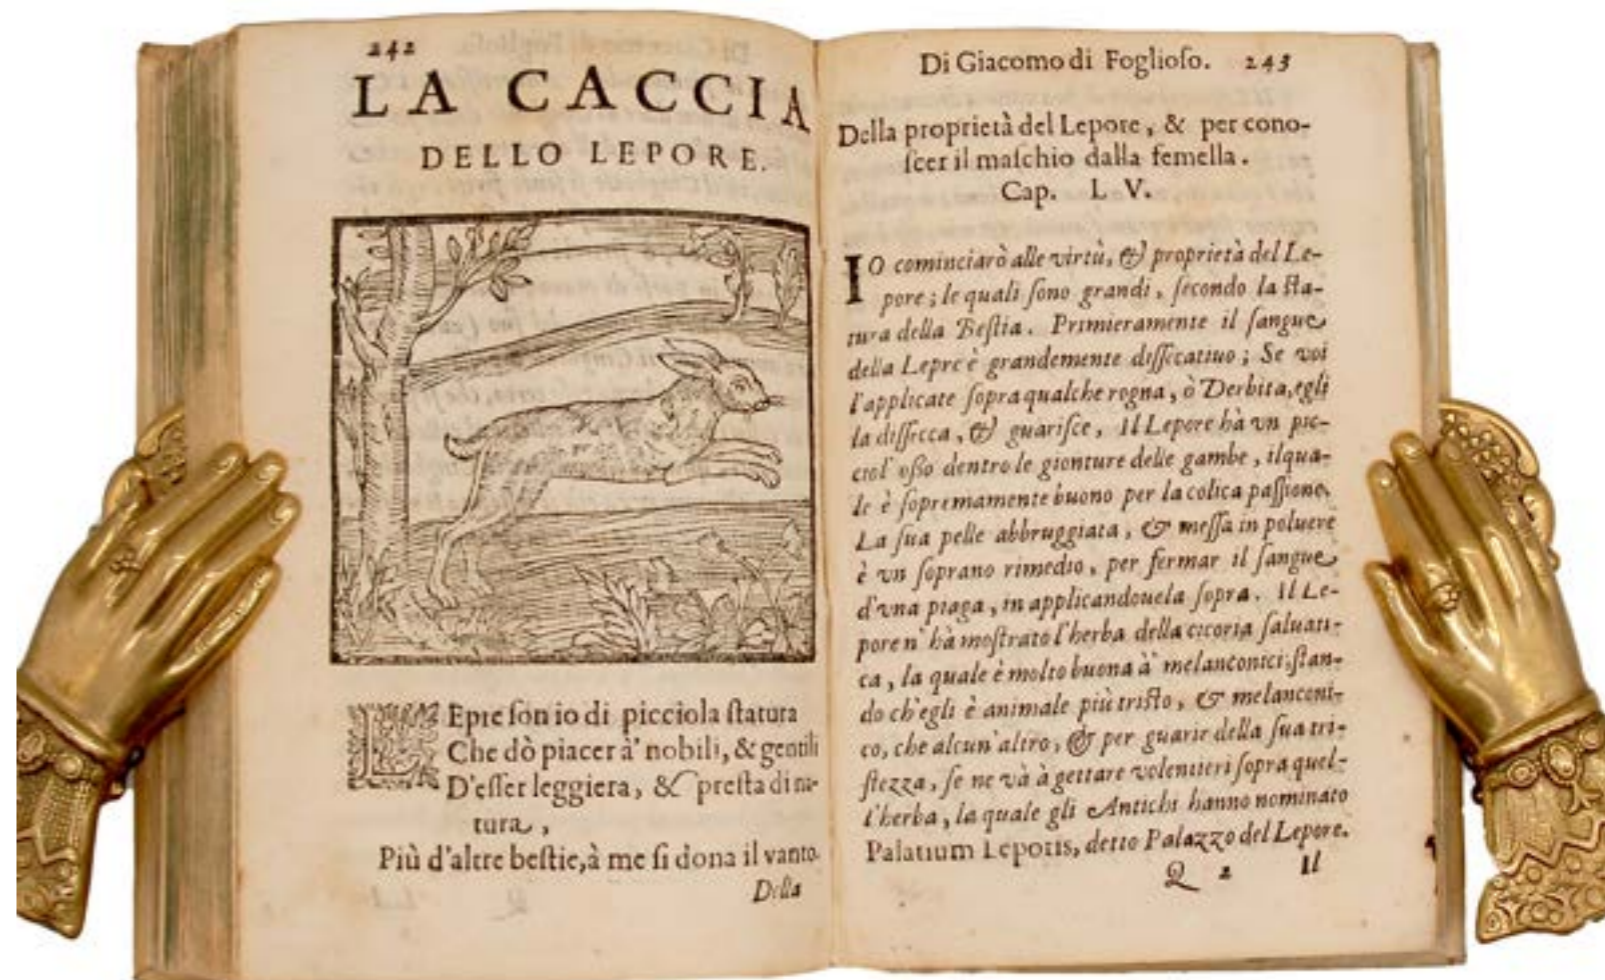 242
LA CACCIA
DELLO LEPORE.
LEpre son io di picciola statura
Che dò piacer à' nobili, & gentili
D'esser leggiera, & presta di na-
tura,
Più d'altre bestie, à me si dona il vanto.
Della
Di Giacomo di Foglioso. 243
Della proprietà del Lepore, & per cono-
scer il maschio dalla femella.
Cap. LV.
IO cominciarò alle virtù, & proprietà del Le-
pore; le quali sono grandi, secondo la sta-
tura della Bestia. Primieramente il sangue
della Lepre è grandemente dissecatiuo; Se voi
l'applicate sopra qualche rogna, ò Derbita, egli
la dissecca, & guarisce, Il Lepore hà vn pic-
ciol' osso dentro le gionture delle gambe, ilqua-
le è sopremamente buono per la colica passione.
La sua pelle abbruggiata, & messa in poluere
è vn soprano rimedio, per fermar il sangue
d'vna piaga, in applicandouela sopra. Il Le-
pore n' hà mostrato l'herba della cicoria saluati-
ca, la quale è molto buona à' melanconici; stan-
do ch'egli è animale più tristo, & melanconi-
co, che alcun' altro, & per guarir della sua tri-
stezza, se ne và à gettare volentieri sopra quel-
l'herba, la quale gli Antichi hanno nominato
Palatium Leporis, detto Palazzo del Lepore.
Q 2 Il